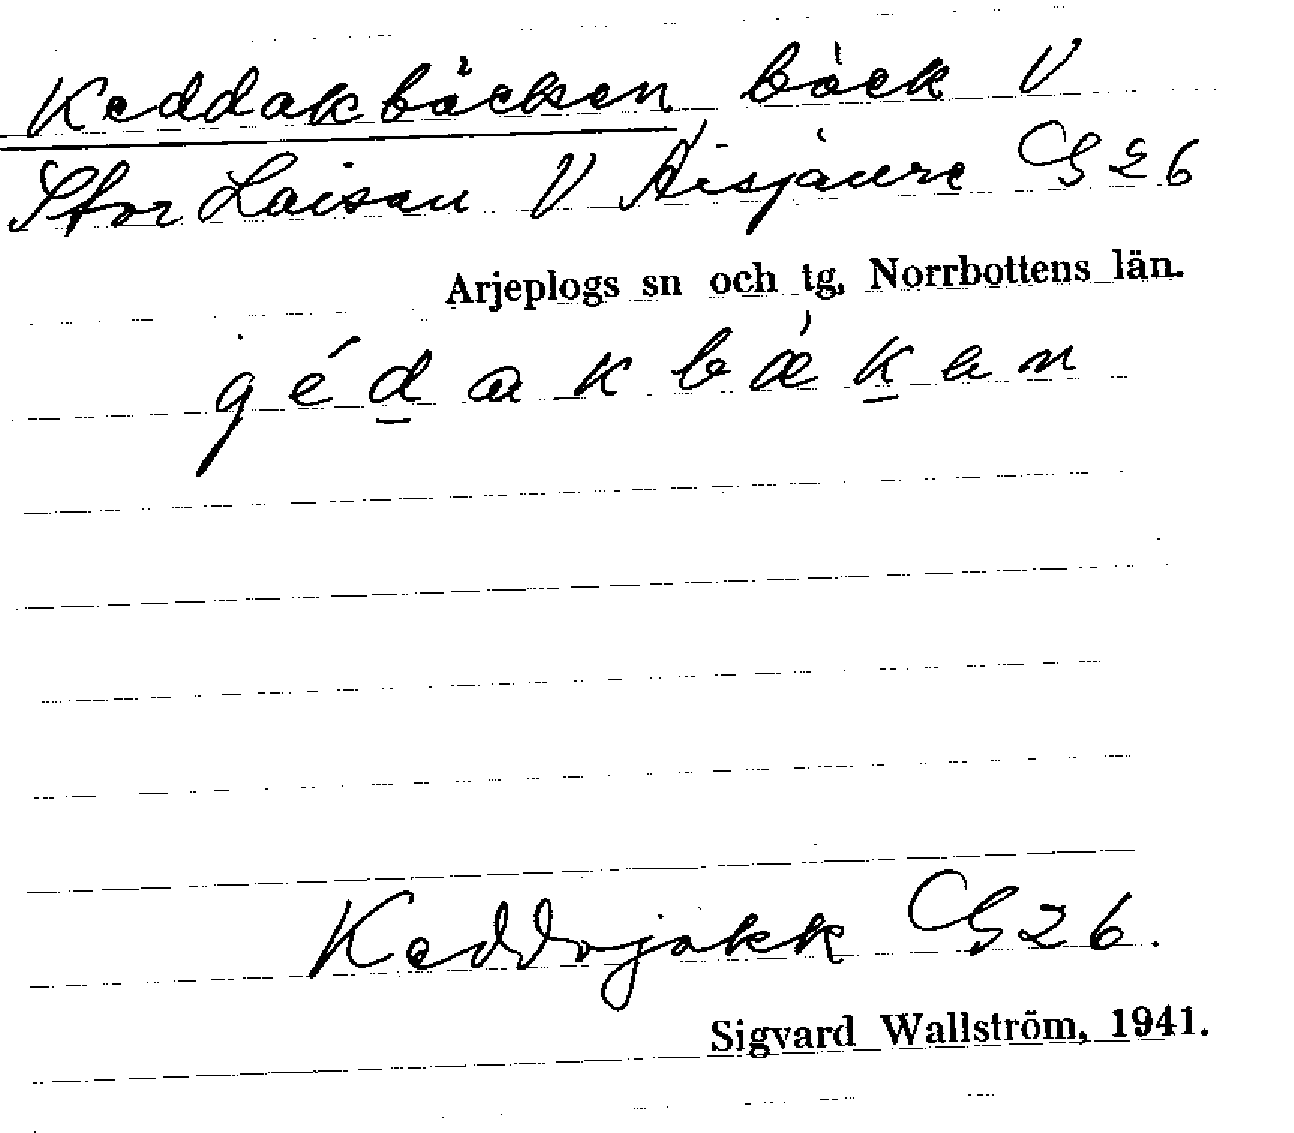 Keddakbäcken bäck V
Stor Laisan V Aisjaure GS 26
Arjeplogs sn och tg, Norrbottens län.
géd̲akbæ̀k̲an
Keddojokk GS 26.
Sigvard Wallström, 1941.